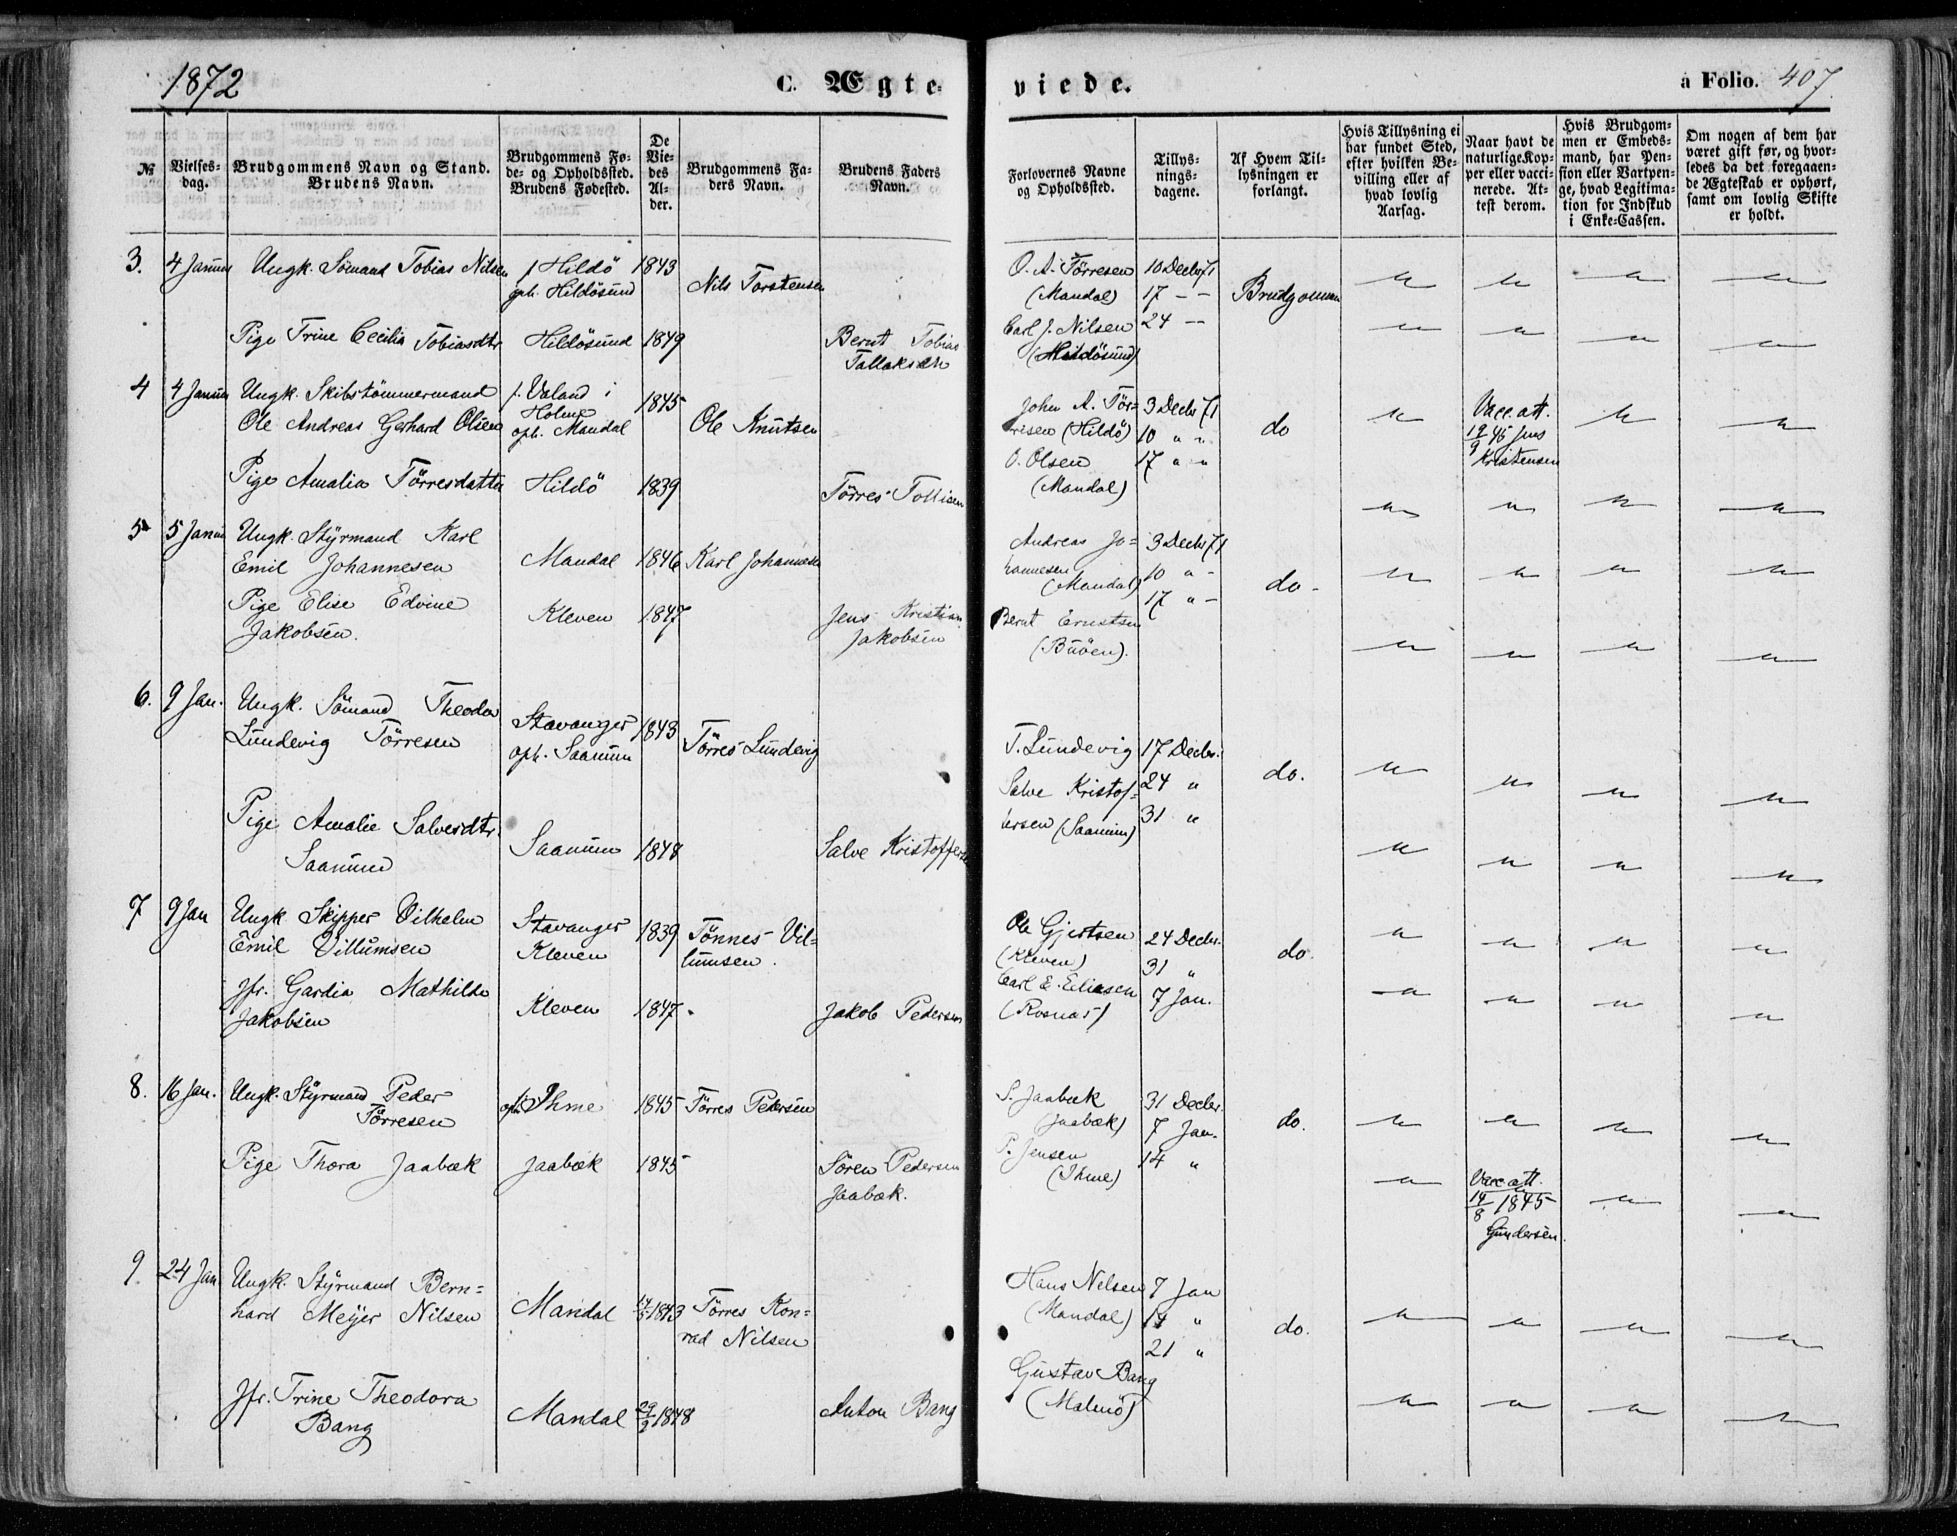 1872 C. Ægte-viede. à Folio. 407
№
Vielses-dag.
Brudgommens Navn og Stand. Brudens Navn.
Brudgommens Fø-de- og Opholdssted. Brudens Fødested.
De Vie-des Al-der.
Brudgommens Fa-ders Navn.
Brudens Faders Navn.
Forlovernes Navne og Opholdssted.
Tillys-nings-dagene.
Af Hvem Til-lysningen er forlangt.
Hvis Tillysning ei har fundet Sted, efter hvilken Be-villing eller af hvad lovlig Aarsag.
Naar havt de naturlige Kop-per eller vacci-nerede. At-test derom.
Hvis Brudgom-men er Embeds-mand, har Pen-sion eller Vartpen-ge, hvad Legitima-tion for Indskud i Enke-Cassen.
Om nogen af dem har været gift før, og hvor-ledes da det foregaaen-de Ægteskab er ophørt, samt om lovlig Skifte er holdt.
3. 4 Januar Ungk. Sömand Tobias Nilsen f. Hildö 1843 Nils Torstensen O. A. Törresen 10 Decbr 71
oph. Hildösund (Mandal) 17 - - Brudgommen
Pige Trine Cecilia Tobiasdtr Hildösund 1849 Bernt Tobias Carl J. Nilsen 24 -
Tallaksen (Hildösund)
4 4 Januar Ungk. Skibstömmermand f. Valand i 1845 Ole Knutsen John A. Tör- 3 Decbr 71 do Vacc. att.
Ole Andreas Gerhard Olsen Holme resen (Hildö) 10 " " 19/9 45 Jens
oph. Mandal O. Olsen 17 " " Kristensen
Pige Amalia Törresdatter Hildö 1839 Törres Tollisen (Mandal)
5 5 Januar Ungk. Styrmand Karl Mandal 1846 Karl Johannesen Andreas Jo- 3 Decbr 71
Emil Johannesen hannesen 10 " - do -
Pige Elise Edvine Kleven 1847 Jens Kristian (Mandal) 17 " -
Jakobsen. Jakobsen Bernt Ernstsen
(Buöen).
6. 9 Jan. Ungk. Sömand Theodor Stavanger 1843 Törres Lundevig T. Lundevig 17 Decbr.
Lundevig Törresen oph. Saanum Salve Kristof- 24 " do.
Pige Amalie Salvesdtr. fersen (Saanum) 31 "
Saanum Saanum 1848 Salve Kristoffersen
7 9 Jan Ungk. Skipper Vilhelm Stavanger 1839 Tönnes Vil- Ole Gjertsen 24 Decbr.
Emil Villumsen Kleven lumsen. (Kleven) 31 " do.
Jfr. Gardia Mathilde Kleven 1847. Jakob Pedersen Carl E. Eliasen 7 Jan.
Jakobsen (Rosnas)
8. 16 Jan. Ungk. Styrmand Peder oph. Ihme 1845 Törres Pedersen S. Jaabæk 31 Decbr.
Törresen (Jaabæk) 7 Jan. do.
Pige Thora Jaabæk Jaabæk 1845 Sören Pedersen P. Jensen 14 "
Jaabæk. (Ihme) Vacc. att.
14/8 1845
Gundersen.
9. 24 Jan Ungk. Styrmand Bern- Mandal 1843 Törres Kon- Hans Nilsen 7 Jan
hard Meyer Nilsen rad Nilsen (Mandal) 14 " do.
21 "
Jfr. Trine Theodora Mandal 29/9 1848 Anton Bang Gustav Bang
Bang (Malmö)